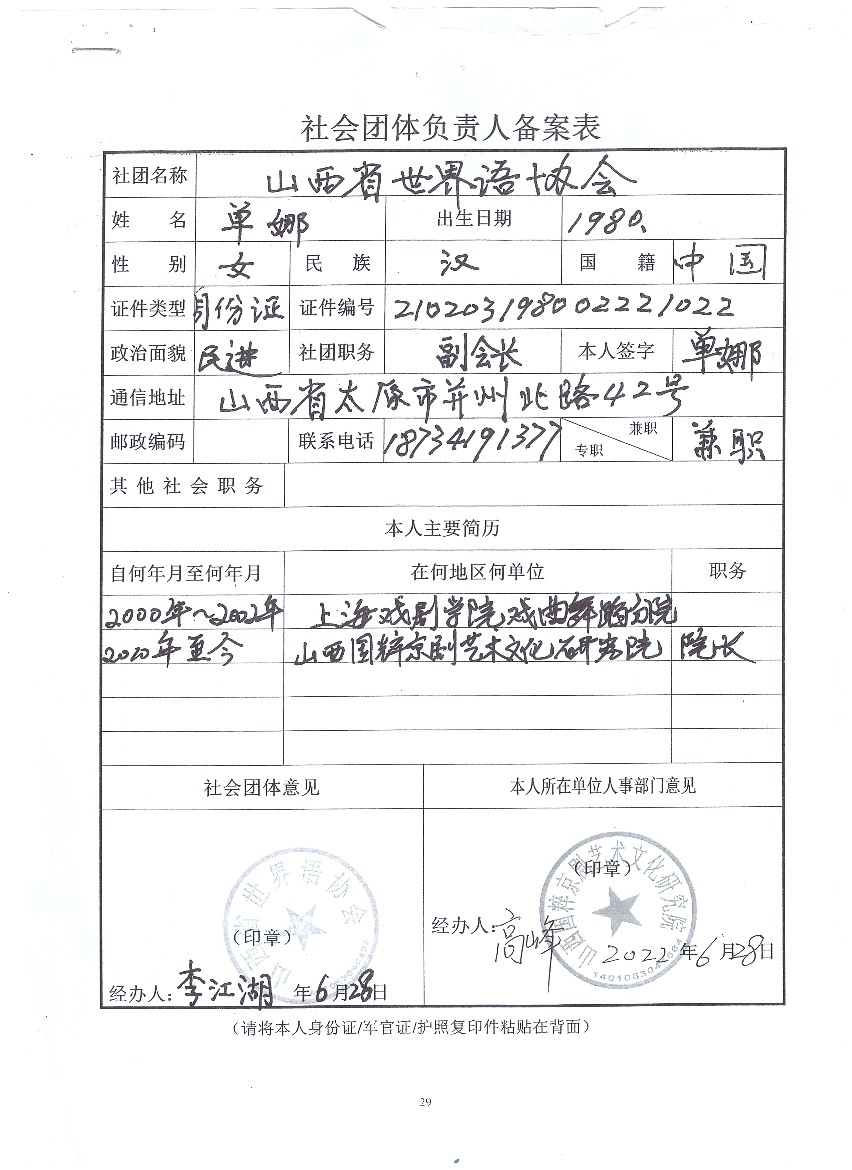 社会团体负责人备案表
社团名称 山西省世界语协会
姓 名 单娜 出生日期 1980.
性 别 女 民 族 汉 国 籍 中国
证件类型 身份证 证件编号 210203198002221022
政治面貌 民进 社团职务 副会长 本人签字 单娜
通信地址 山西省太原市并州北路42号
邮政编码 联系电话 18734191377 专职 兼职 兼职
其他社会职务
本人主要简历
自何年月至何年月 在何地区何单位 职务
2000年~2002年 上海戏剧学院戏曲舞蹈分院
2020年至今 山西国粹京剧艺术文化研究院 院长
社会团体意见 本人所在单位人事部门意见
山西省世界语协会
(印章)
经办人:李江湖 年6月28日
山西国粹京剧艺术文化研究院
(印章)
经办人:高峰 2022年6月28日
(请将本人身份证/军官证/护照复印件粘贴在背面)
29